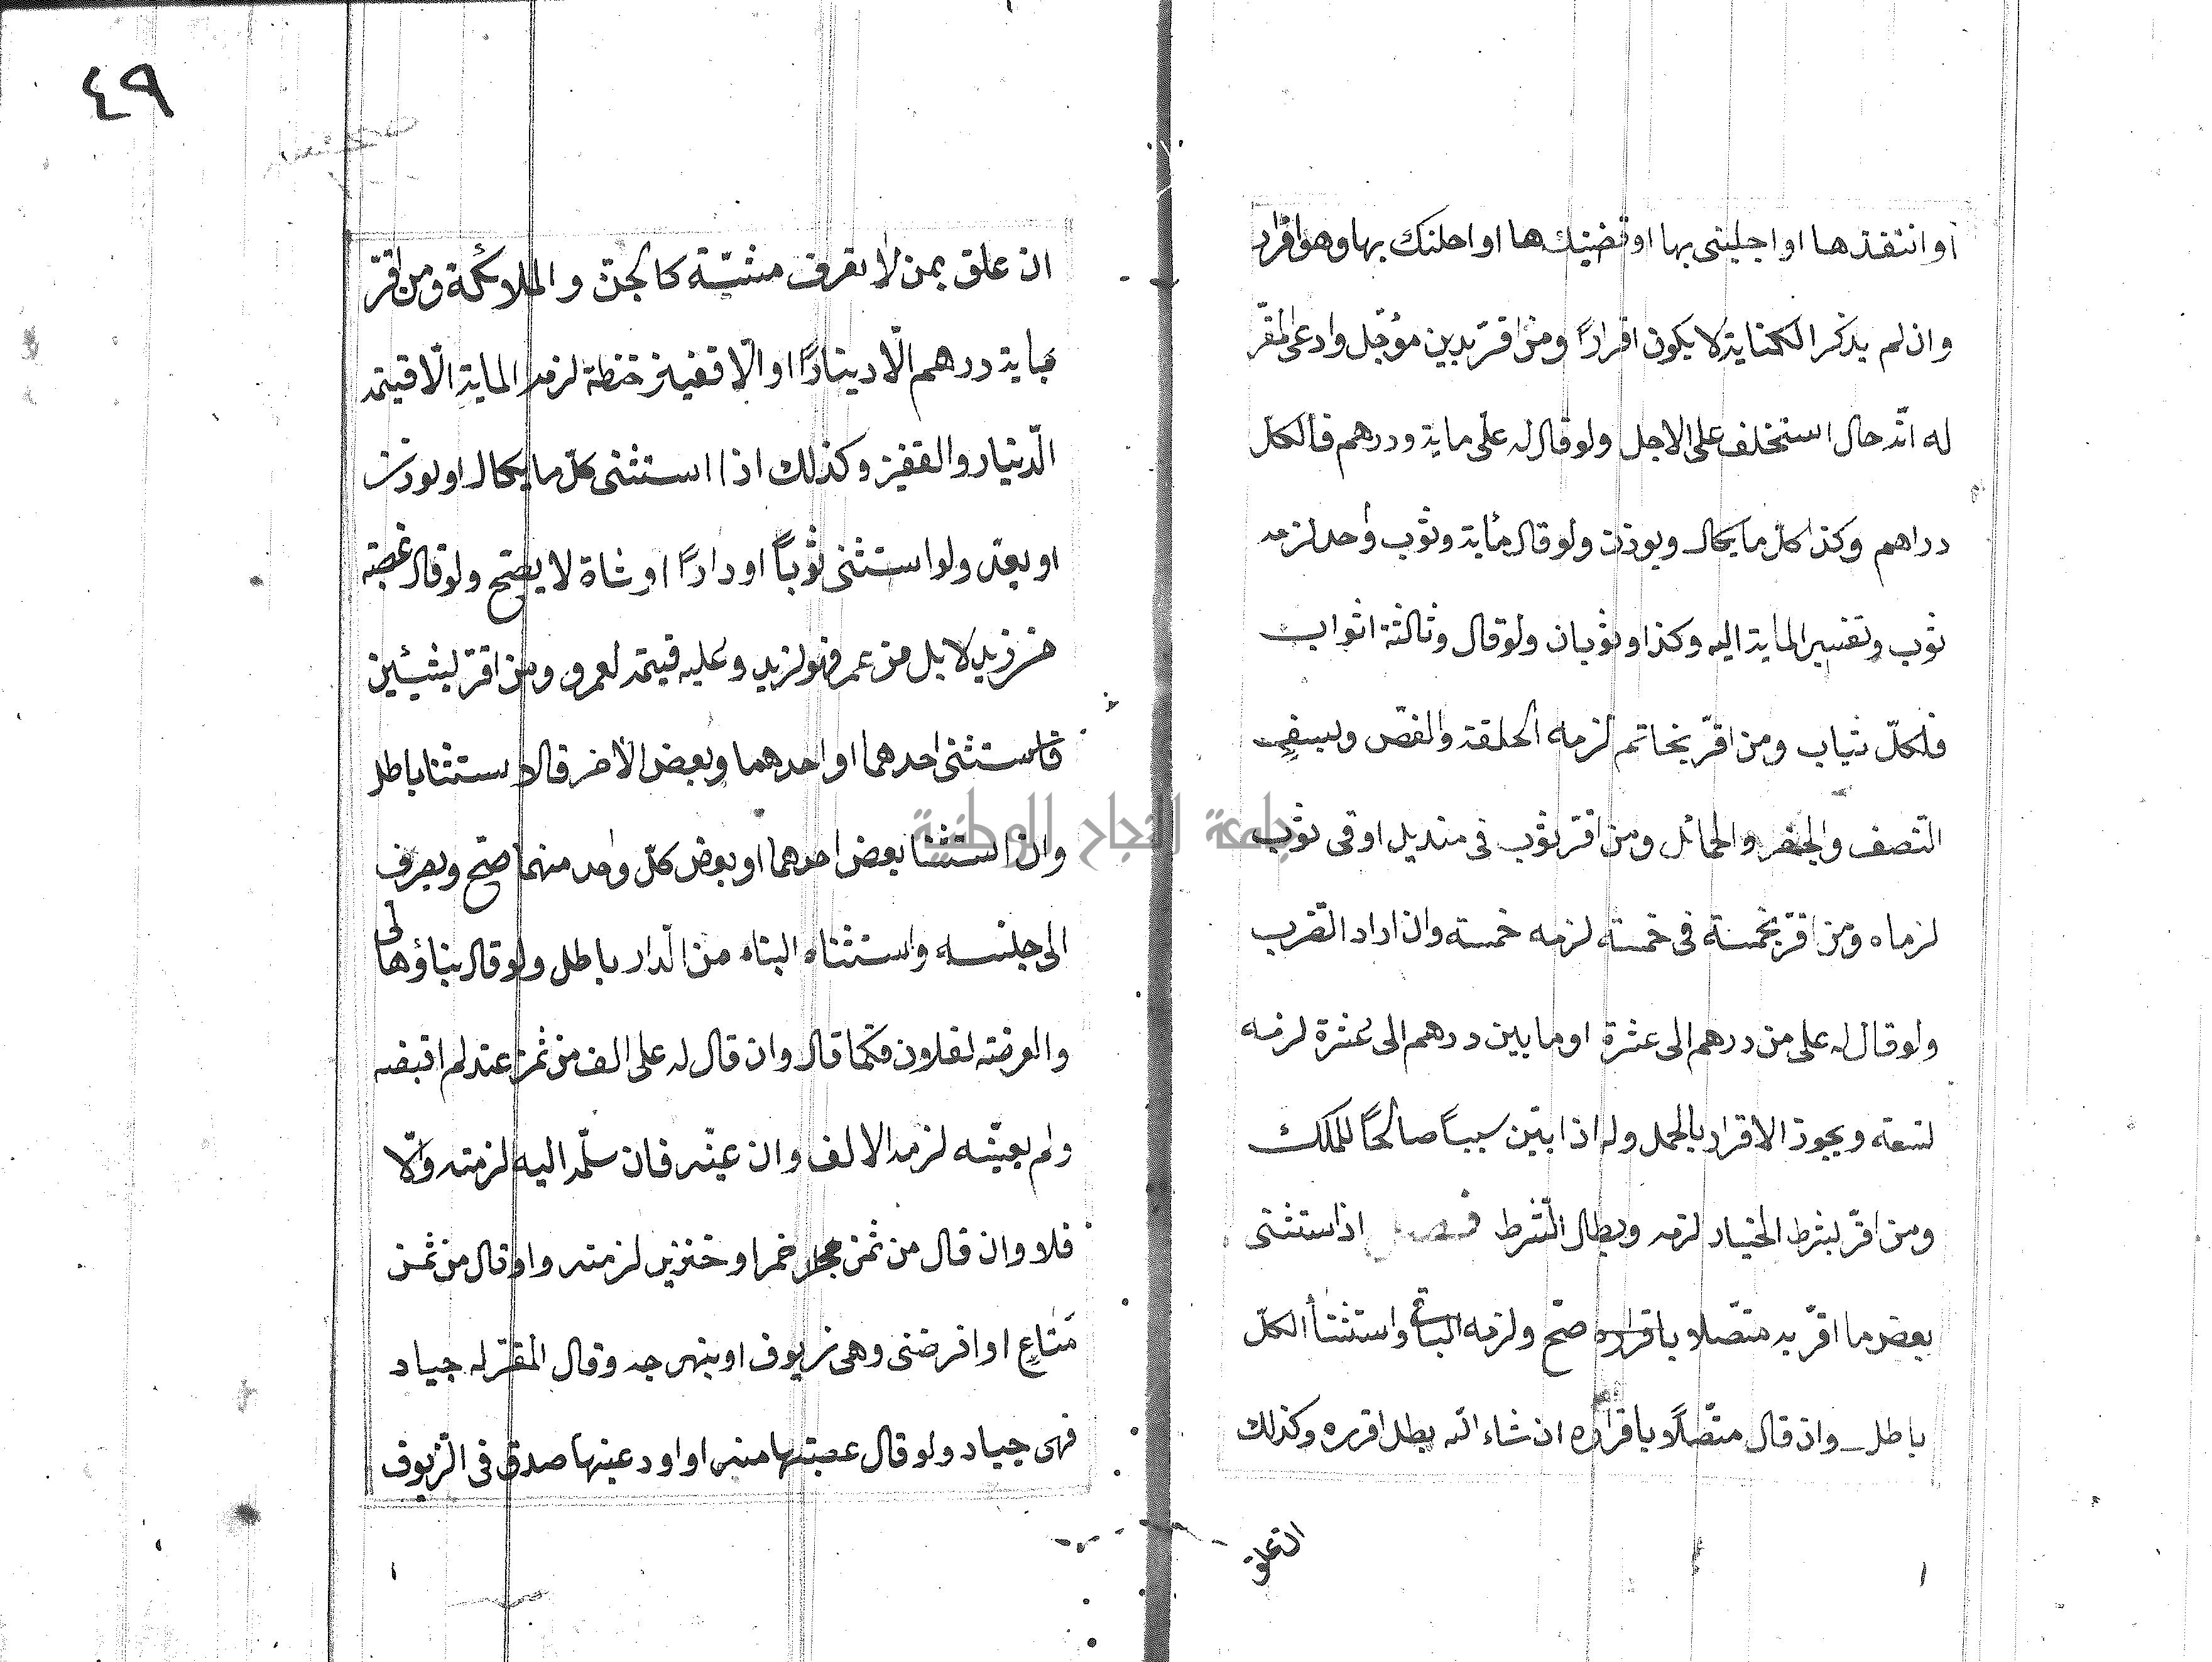 ٤٩
أو انتقدها او اجلينى بها او قضيتك‍ها او احلتك بها وهو اقرار
وان لم يذكر الكناية لا يكون اقرارًا ومن اقرّ بدين مؤجّل وادعى المقرّ
له انّه حال استحلف على الاجل ولو قال له علىّ ماية ودرهم فالكلّ
دراهم وكذا كلّ ما يكال ويوزن ولو قال ماية وثوب واحد لزمه
ثوب وتفسير الماية اليه وكذا وثوبان ولو قال وثالثة اثواب
فلكلّ ثياب ومن اقرّ بخاتم لزمه الحلقة والفصّ وبسيفٍ
النّصف والجفر والحمائل ومن اقرّ بثوب فى منديل او فى ثوب
لزماه ومن اقرّ بخمسة فى خمسة لزمه خمسة وان اراد الضّرب
ولو قال له على من درهم الى عشرة او ما بين درهم الى عشرة لزمه
تسعة ويجوز الاقرار بالحمل وله اذا بيّن سببًا صالحًا للملك
ومن اقرّ بشرط الخيار لزمه وبطال الشّرط فصل اذ استثنى
بعض ما اقرّ به متّصلا باقراره صحّ ولزمه الباقى واستثنأ الكلّ
باطل وان قال متّصلًا باقراره ان شاء الله بطل اقرره وكذلك
ان علق
ان علق بمن لا يعرف مشيّة كالجنّ والملائكة ومن اقرّ
بماية درهم الّا دينارًا او الّا قفيز حنطة لزمه الماية الّا قيمة
الدّنيار والقفيز وكذلك اذا استثنى كلّ ما يكال او يوزن
او يعدّ ولو استثنى ثوبًا او دارًا او شاة لا يصحّ ولو قال غصبته
من زيد لا بل من عمر فهو لزيد وعليه قيمته لعمرو ومن اقرّ بشيئين
فاستثنى احدهما او احدهما وبعض الأخر فالاستثنا باطل
وان استثنا بعض احدهما او بعض كلّ واحد منهما صحّ ويصرف
الى جنسه واستثناء البناء من الدّار باطل ولو قال بناؤها لى
والعرضة لفلان فكما قال وان قال له على الف من ثمن عبد لم اقبضه
ولم يعيّنه لزمه الالف وان عيّنه فان سلّمه اليه لزمته والّا
فلا وان قال من ثمن خمر او خنزير لزمته واو قال من ثمن
مَتاعٍ او اقرضنى وهى زيوف او بنهرجه وقال المقرّ له جياد
فهى جياد ولو قال غصبتها منه او اودعنيها صدق فى الزّيوف
جامعة النجاح الوطنية